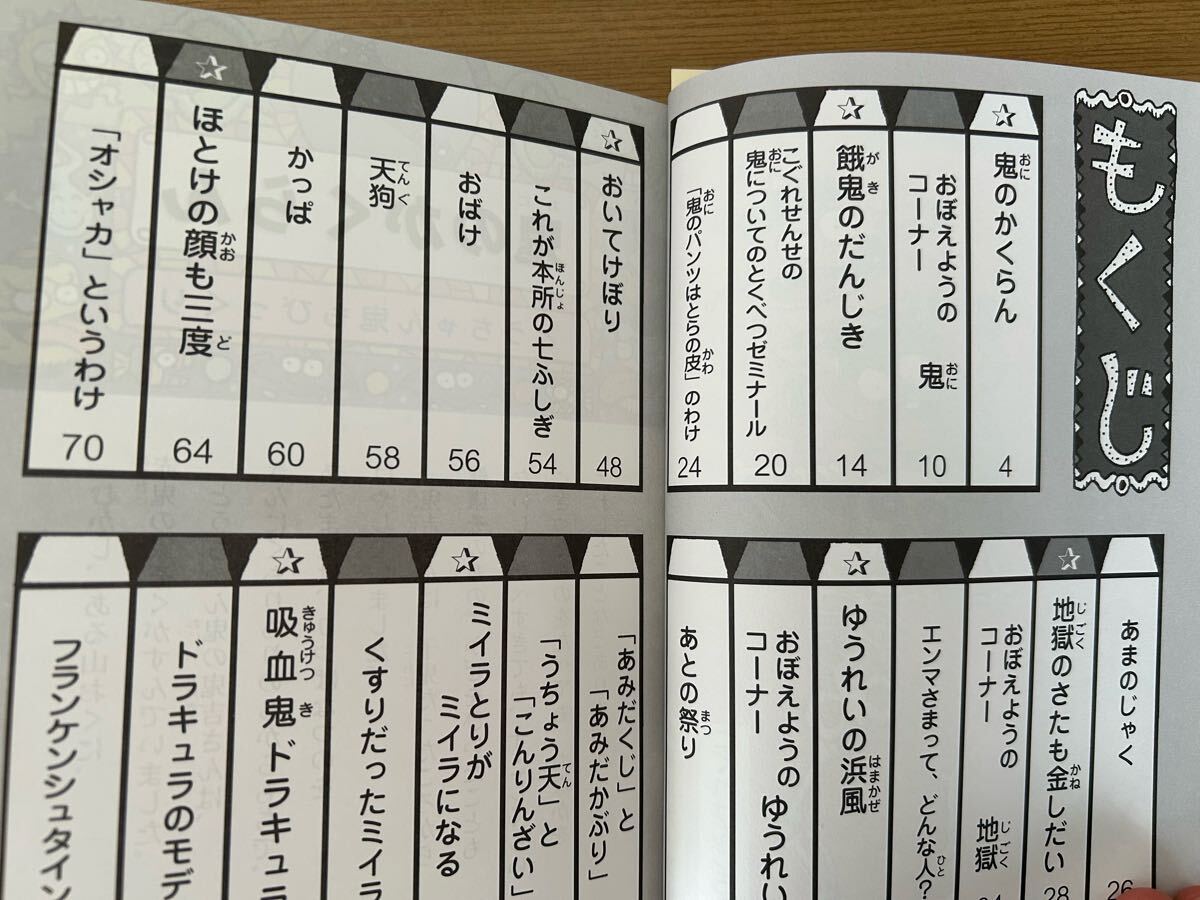 もくじ
☆鬼のかくらん 4
おぼえようの
コーナー 鬼 10
☆餓鬼のだんじき 14
こぐれせんせの
鬼についてのとくべつゼミナール 20
「鬼のパンツはとらの皮」のわけ 24
あまのじゃく 26
☆地獄のさたも金しだい 28
おぼえようの
コーナー 地獄
エンマさまって、どんな人?
☆ゆうれいの浜風
おぼえようの
コーナー ゆうれい
あとの祭り
☆おいてけぼり 48
これが本所の七ふしぎ 54
おばけ 56
天狗 58
かっぱ 60
☆ほとけの顔も三度 64
「オシャカ」というわけ 70
「あみだくじ」と
「あみだかぶり」
「うちょう天」と
「こんりんざい」
☆ミイラとりが
ミイラになる
くすりだったミイラ
☆吸血鬼ドラキュラ
ドラキュラのモデ
フランケンシュタイン